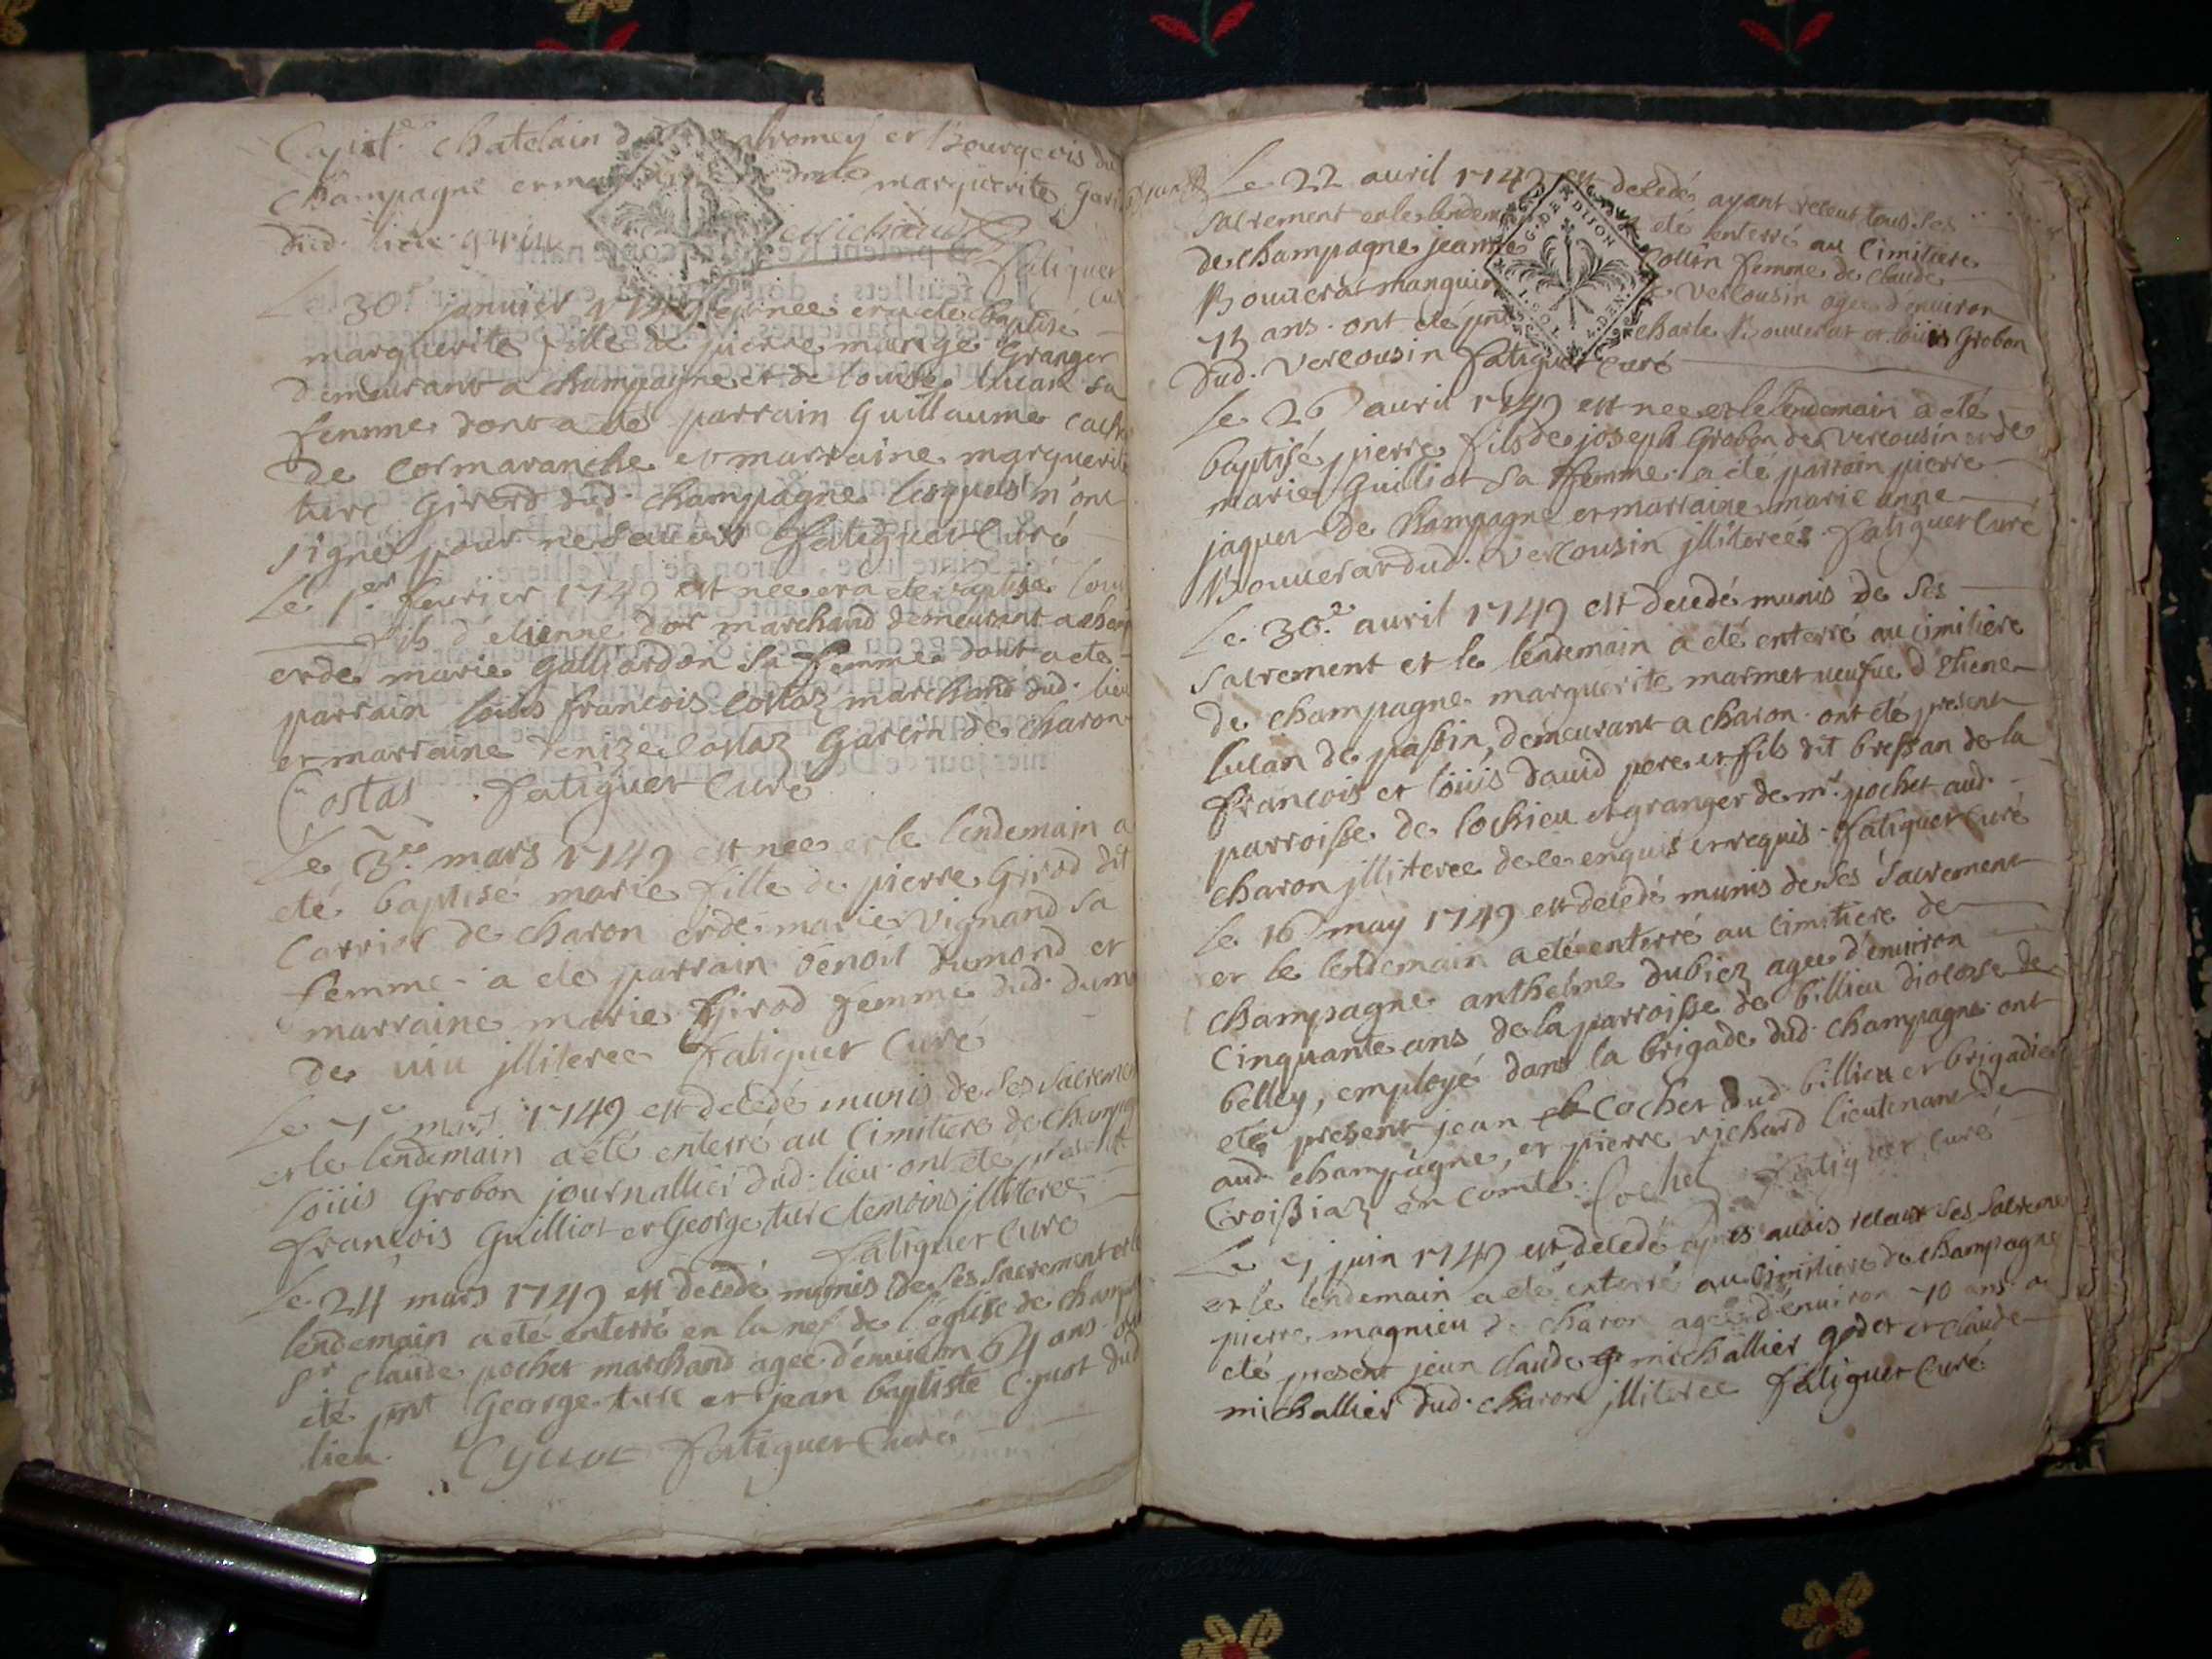 Capit.e Chatelain d valromey et Bourgeois du
Champagne et ma dlle marguerite gari
dud. lieu
fatiguet
Le 30e janvier 1749 est nee et a eté baptisé
marguerite fille de pierre mange Granger
demeurant a champagne et de louise lucan sa
femme dont a eté parrain Guillaume
de Cormaranche et marraine marguerite
turc Girerd dud. Champagne lesquels n'ont
signe pour ne scavoir fatiguet Curé
Le 1.er fevrier 1749 est nee et a eté baptisé
fils d'etienne dor marchand demeurant a cham
et de marie Galliardon sa femme dont a eté
parrain loüis francois Costaz marchand dud. lieu
et marraine denize Costaz Gavein de Charon
Costas . fatiguet Curé
Le 3.e mars 1749 est nee et le lendemain a
eté baptisé marie fille de pierre Girod dit
Carrier de charon et de marie vignand sa
femme a eté parrain benoit dumond et
marraine marie Girod femme dud. dum
de viu jlliteree fatiguet Curé
Le 7e mars 1749 est decedé munis de ses sacremen
et le lendemain a eté enterré au Cimitiere de Champ
loüis Grobon journallier dud. lieu ont eté present
francois Guilliot et George turc temoins jlliteree
fatiguet Curé
Le 24 mars 1749 est decedé munis de ses sacrement et le
lendemain a eté enterré en la nef de l'eglise de champ
sr Claude pochet marchand agee d'environ 64 ans
eté pnt George turc et jean baptiste Cyvot dud
lieu. Cyvot fatiguet Curé
Le 22 avril 1749 est decedé ayant receut tous ses
sacrement et le lendem eté enterré au Cimitiere
de champagne jeanne Collin femme de Claude
Bouverat manguin Vercousin agee d'environ
73 ans. ont eté pnt charle Bouverat et loüis Grobon
dud. Vercousin fatiguet Curé
Le 26 avril 1749 est nee et le lendemain a eté
baptisé pierre fils de joseph Grobon de Vercousin et de
marie Guilliot sa femme. a eté parrain pierre
jaquet de Champagne et marraine marie anne
Bouverar dud. Vercousin jlliterees. fatiguet Curé
Le 30.e avril 1749 est decedé munis de ses
sacrement et le lendemain a eté enterré au cimitiere
de champagne marguerite marmet veufve d'Etiene
lucan de passin, demeurant a charon. ont eté present
francois et loüis david pere et fils dit bressan de la
parroisse de lochieu et granger de mr. pochet aud.
charon jlliteree de ce enquis et requis. fatiguet Curé
Le 16 may 1749 est decedé munis de ses sacrement
et le lendemain a eté enterré au Cimitiere de
Champagne anthelme dubiez agee d'environ
Cinquante ans de la parroisse de billieu diocesse de
belley, employé dans la brigade dud. champagne ont
eté present jean Cochet dud. billieu et brigadier
aud. champagne, et pierre richard lieutenant de
Croissiaz en Comte. Cochet fatiguet Curé
Le 7 juin 1749 est decedé apres avois receut ses sacremen
et le lendemain a eté enterré au Cimitiere de champagne
pierre magnieu de charon agee d'environ 70 ans a
eté present jean claude michallier godet et claude
michallier dud. charon jlliteree fatiguet Curé
G. DE DIJON
1. SOL 4. DEN.